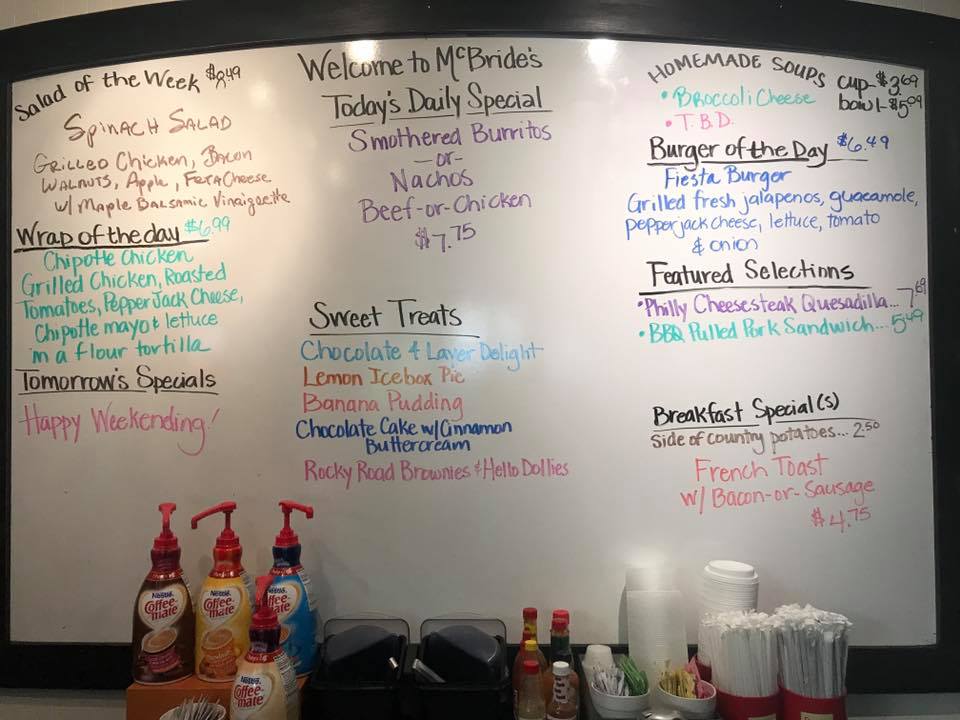 Salad of the Week $8.49
Spinach Salad
Grilled Chicken, Bacon
Walnuts, Apple, Feta Cheese
w/ Maple Balsamic Vinaigrette
Wrap of the day $6.99
Chipotle Chicken
Grilled Chicken, Roasted
Tomatoes, Pepper Jack Cheese,
Chipotle mayo & lettuce
in a flour tortilla
Tomorrow's Specials
Happy Weekending!
Welcome to McBride's
Today's Daily Special
Smothered Burritos
-or-
Nachos
Beef-or-Chicken
$7.75
Sweet Treats
Chocolate 4 Layer Delight
Lemon Icebox Pie
Banana Pudding
Chocolate Cake w/Cinnamon
Buttercream
Rocky Road Brownies & Hello Dollies
Homemade Soups cup-$3.69
bowl-$5.09
• Broccoli Cheese
• T.B.D.
Burger of the Day $6.49
Fiesta Burger
Grilled fresh jalapenos, guacamole,
pepperjack cheese, lettuce, tomato
& onion
Featured Selections
• Philly Cheesesteak Quesadilla... 7.69
• BBQ Pulled Pork Sandwich... 5.49
Breakfast Special(s)
Side of country potatoes... 2.50
French Toast
w/ Bacon-or-Sausage
$4.75
Nestle
Coffee-mate
Nestle
Coffee-mate
Nestle
Coffee-mate
Nestle
Coffee-mate